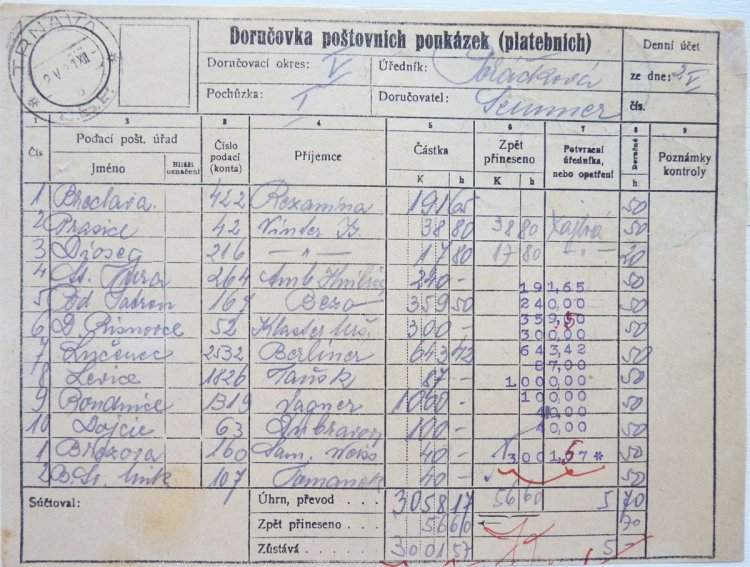 TRNAVA
Doručovka poštovních poukázek (platebních)
Denní účet
Doručovací okres: V
Úředník:
ze dne: 2/V
Pochůzka: I
Doručovatel:
čís.
1 2 3 4 5 6 7 8 9
Čís. Podací pošt. úřad Číslo podací (konta) Příjemce Částka Zpět přineseno Potvrzení úředníka, nebo opatření Doručné Poznámky kontroly
Jméno Bližší označení K h K h h
1 Břeclava 422 Rozamina 191 65 50
2 Prasice 42 38 80 38 80 50
3 Dioseg 216 — „ — 17 80 17 80 20
4 St. Tura 264 240 - 50
191,65
5 Pod Tatrou 167 Bezo 359 50 50
240,00
6 D. Risnovce 52 Klaster 300 - 50
300,00
7 Lučenec 2532 Berliner 643 42 50
643,42
87,00
8 Levice 1826 87 - 50
1000,00
9 1319 Lagner 1000 - 50
100,00
40,00
10 Dojčie 63 100 - 50
40,00
1 Brezova 160 Sam. 40 - 50
3001,57 *
2 107 Tomanek 40 - 50
Súčtoval:
Úhrn, převod . . . 3058 17 56 60 5 70
Zpět přineseno . . . 56 60 70
Zůstává . . . 3001 57 5 -